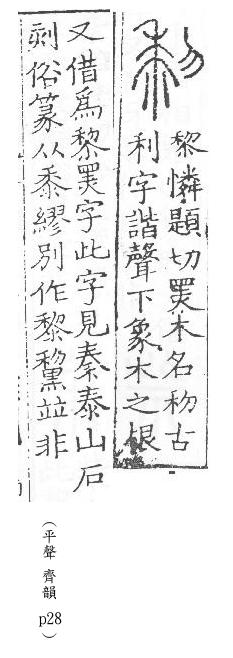 黎憐題切黑木名𥝢古
利字諧聲下象木之根
又借爲黎黑字此字見秦泰山石
刻俗篆从黍繆別作黎黧並非
（平聲 齊韻 p28）